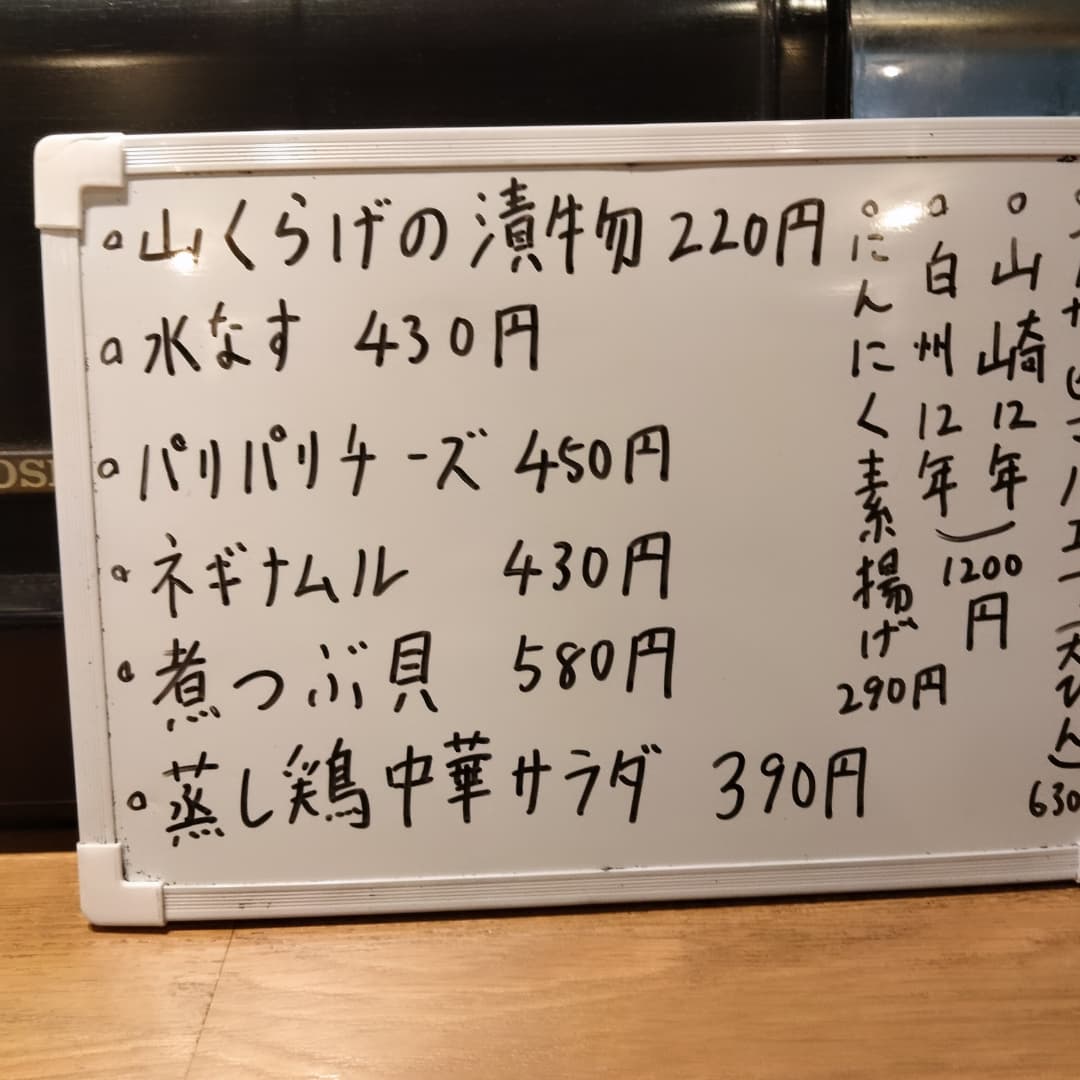 山くらげの漬物 220円
水なす 430円
パリパリチーズ 450円
ネギナムル 430円
煮つぶ貝 580円
蒸し鶏中華サラダ 390円
にんにく素揚げ 290円
白州12年
山崎12年
1200円
630